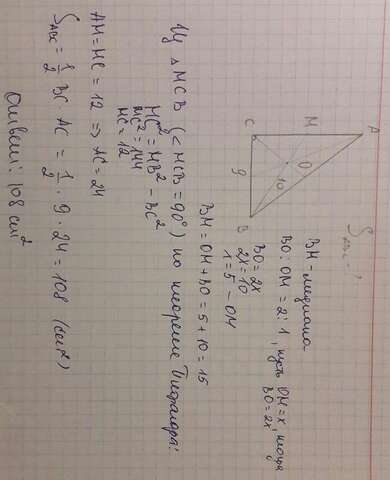 S_ABC = ?
A
M
O
C
9
10
B
BM – медиана
BO : OM = 2 : 1, пусть OM = x, тогда
BO = 2x
BO = 2x
2x = 10
1 = 5 – OM
BM = OM + BO = 5 + 10 = 15
Из △ MCB (∠MCB = 90°) по теореме Пифагора:
MC² = MB² – BC²
MC² = 144
MC = 12
AM = MC = 12 ⇒ AC = 24
S_ABC = 1/2 BC AC = 1/2 · 9 · 24 = 108 (см²)
Ответ: 108 см²